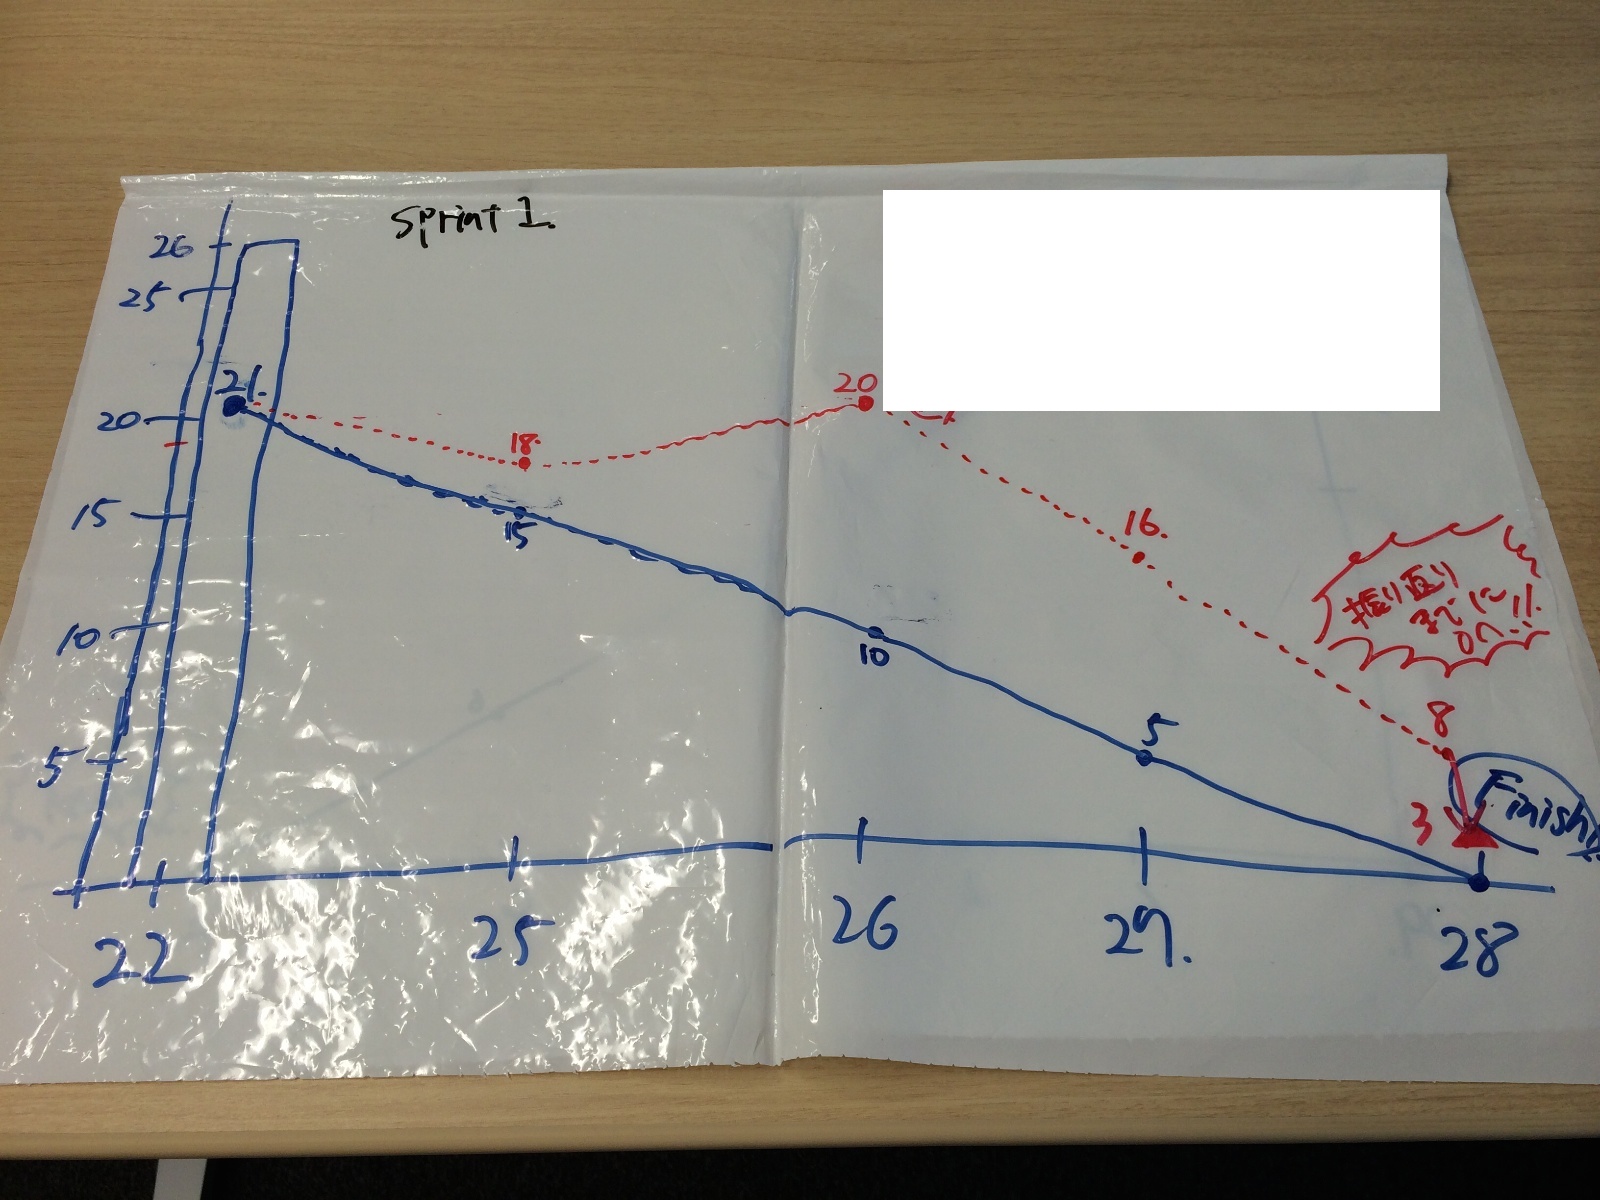 Sprint 1.
26
25
20
15
10
5
21.
18.
20
16.
8
3
15
10
5
振り返り
までに
0へ!!
Finish!
22
25
26
27.
28